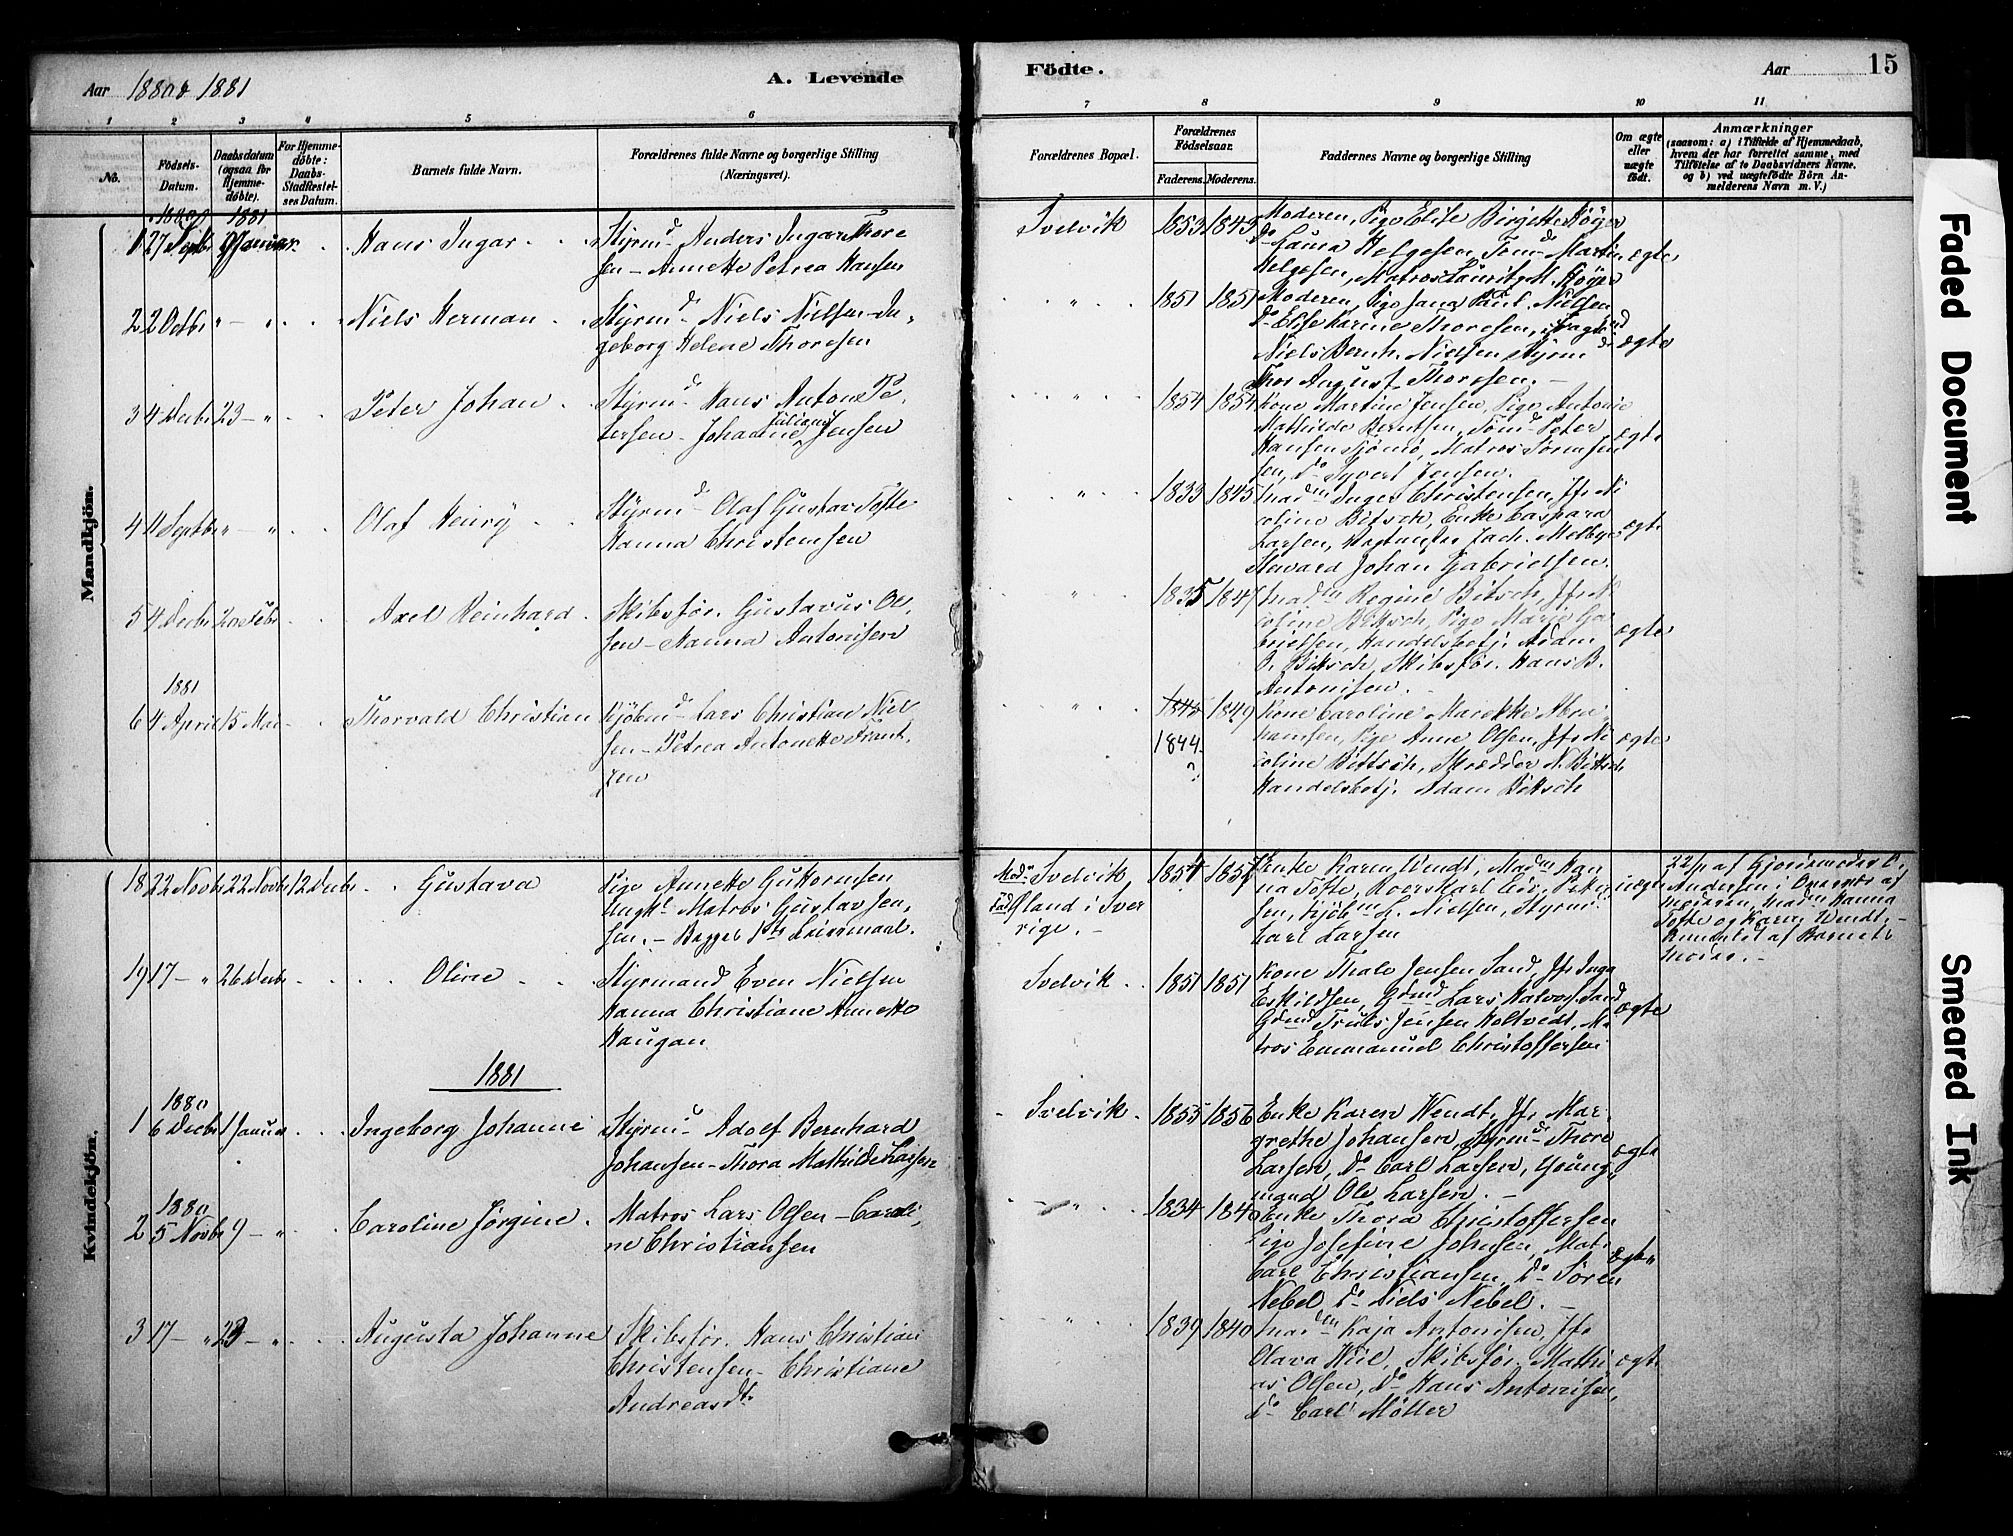 Aar 1880 & 1881
A. Levende
Födte.
Aar
15
1
2
3
4
5
6
7
8
9
10
11
No.
Födsels-
Datum.
Daabsdatum
(ogsaa for
Hjemme-
döbte).
For Hjemme-
döbte:
Daabs-
Stadfæstel-
ses Datum.
Barnets fulde Navn.
Forældrenes fulde Navne og borgerlige Stilling
(Næringsvei).
Forældrenes Bopæl.
Forældrenes
Födselsaar.
Faderens.
Moderens.
Faddernes Navne og borgerlige Stilling
Om ægte
eller
uægte
födt.
Anmærkninger
(saasom: a) i Tilfælde af Hjemmedaab,
hvem der har forrettet samme, med
Tilföielse af to Daabsvidners Navne.
og b) ved uægtefödte Börn An-
melderens Navn m. V.)
Mandkjön.
1880
1881
1 27 Septbr 9 Januar
Hans Ingar
Styrmd Anders Ingar Thore
sen - Annette Petrea Hansen
Svelvik
1853 1845
Moderen, Pige Elise Birgitte Höyer
Do Laura Helgesen, Tömd Martin
Helgesen, Matros Laurits M. Höyer
ægte
2 2 Octbr " - "
Niels Herman
Styrmd Niels Nielsen - In-
geborg Helene Thoresen
"
1851 1851
Moderen, Pige Jana Paul. Nielsen
Do Elise Karine Thoresen,
Niels Bernh. Nielsen Styrmd
Thor August Thoresen. -
ægte
3 4 Decbr 23 - "
Peter Johan
Styrmd Hans Anton Pe-
tersen - Johanne Juliane Jensen
"
1854 1854
Kone Martine Jensen, Pige Antonie
Mathilde Berntsen, Tömd Peter
Hansen Tjömö, Matros
sen, Do Syvert Jensen.
ægte
4 11 Septbr " "
Olaf Henry
Styrmd Olaf Gustav Tofte
Hanna Christensen
"
1833 1845
Madm Inger Christensen, Jfr Ni
coline Bitsch, Enke Caspara
Larsen, Jach. Melbye
Stuvard Johan Gabrielsen.
ægte
5 4 Decbr 2den Febr
Axel Reinhard
Skibsför. Gustavus Ol-
sen - Nanna Antonisen
"
1835 1847
Madm Regine Bitsch, Jfr Ni
coline Bitsch, Pige Marie Ga
brielsen, Handelsbetj. Adam
B. Bitsch, Skibsför. Hans B.
Antonisen.
ægte
1881
6 4 April 15 Mai
Thorvald Christian
Kjöbmd Lars Christian Niel
sen - Petrea Antonette Frant-
zen
"
1848 1849
1844
?
Kone Caroline Marekke Abra
hamsen, Pige Anne Olsen, Jfr Ni
coline Bittsch, Skrædder N. Bittsch
Handelsbetj. Adam Bittsch
ægte
Kvindekjön.
18 22 Novbr 22 Novbr 12 Decbr
Gustava
Pige Annette Guttormsen
Ungk. Matros Gustav Jen-
sen. - Begges 1ste Leiermaal.
Mods Svelvik
Fads Öland i Sver
rige. -
1854 1857
Enke Karen Wendt, Madm Han
na Tofte,
sen, Kjöbm L. Nielsen, Styrmd
Carl Larsen
uægte
22/11 af Gjordemoder O.
Andersen i Overvær af
Moderen, Madm Hanna
Tofte og Karen Wendt. -
Anmeldt af Barnets
Moder. -
19 17 - " 26 Decbr
Oline
Styrmand Even Nielsen
Hanna Christiane Annette
Haugan
Svelvik
1851 1851
Kone Thale Jensen Sand, Jfr Inga
Eskildsen, Gdmd Lars Halvors. Sand
Gdmd Truls Jensen Holtvedt, Ma
tros Emmanuel Christoffersen
ægte
1881
1880
1 6 Decbr 1 Januar
Ingeborg Johanne
Styrmd Adolf Bernhard
Johansen - Thora Mathilde Larsen
Svelvik
1855 1856
Enke Karen Wendt, Jfr Mar-
grethe Johansen, Styrmd Thore
Larsen, Do Carl Larsen, Young
mand Ole Larsen. -
ægte
1880
2 5 Novbr 9 - "
Caroline Jörgine
Matros Lars Olsen - Caroli
ne Christiansen
"
1834 1840
Enke Thora Christoffersen
Pige Josefine Johnsen, Mat.
Carl Christiansen, Do Sören
Nebel, Do Niels Nebel. -
ægte
3 17 - " 23 - "
Augusta Johanne
Skibsför. Hans Christian
Christensen - Christiane
Andreasdt.
"
1839 1840
Madm Kaja Antonisen, Jfr
Olava Hiil, Skibsför. Mathi
as Olsen, Do Hans Antonisen,
Do Carl Möller
ægte
Faded Document
Smeared Ink